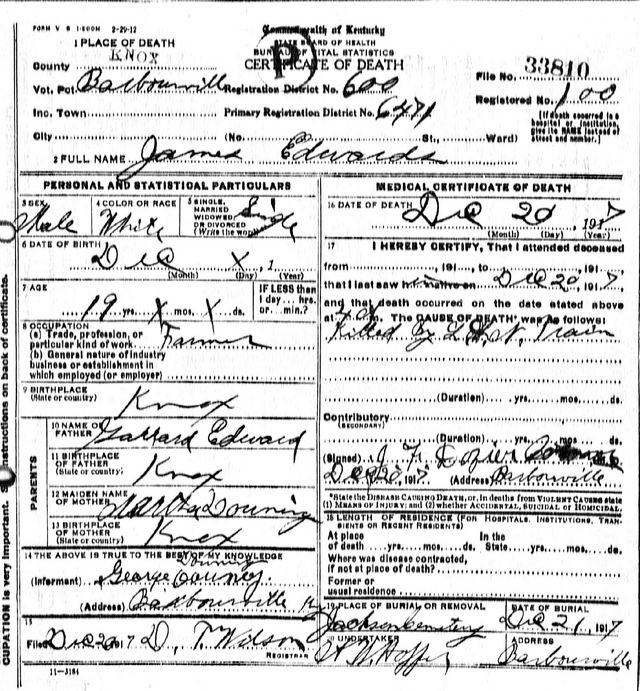 FORM V S 1-500M 2-29-12
Commonwealth of Kentucky
STATE BOARD OF HEALTH
BUREAU OF VITAL STATISTICS
CERTIFICATE OF DEATH
1 PLACE OF DEATH
County KNOX
File No. 33810
Vot. Pct. Barbourville Registration District No. 600
Registered No. 100
Inc. Town Primary Registration District No. 6471
[If death occurred in a hospital or institution, give its NAME instead of street and number.]
City (No. St., Ward)
2 FULL NAME James Edwards
PERSONAL AND STATISTICAL PARTICULARS
3 SEX Male
4 COLOR OR RACE White
5 SINGLE, MARRIED WIDOWED OR DIVORCED (Write the word) Single
6 DATE OF BIRTH Dec X, 1
(Month) (Day) (Year)
7 AGE 19 yrs. X mos. X ds.
IF LESS than 1 day... hrs. or... min.?
8 OCCUPATION
(a) Trade, profession, or particular kind of work Farmer
(b) General nature of industry business or establishment in which employed (or employer)
9 BIRTHPLACE (State or country) Knox
PARENTS
10 NAME OF FATHER Garrard Edward
11 BIRTHPLACE OF FATHER (State or country) Knox
12 MAIDEN NAME OF MOTHER Martha Downing
13 BIRTHPLACE OF MOTHER (State or country) Knox
14 THE ABOVE IS TRUE TO THE BEST OF MY KNOWLEDGE
(Informant) George
(Address) Barbourville Ky
15
Filed Dec 26 1917 D. T. Wilson
REGISTRAR
11-3184
MEDICAL CERTIFICATE OF DEATH
16 DATE OF DEATH Dec 20, 1917
(Month) (Day) (Year)
17 I HEREBY CERTIFY, That I attended deceased
from 191..., to 191...,
that I last saw alive on Dec 20, 1917
and that death occurred on the date stated above
at m. The CAUSE OF DEATH* was as follows:
Killed By L & N. Train
(Duration) yrs. mos. ds.
Contributory
(SECONDARY)
(Duration) yrs. mos. ds.
(Signed) J. F. Dozier
Dec 21, 1917 (Address) Barbourville
*State the DISEASE CAUSING DEATH, or, in deaths from VIOLENT CAUSES state (1) MEANS OF INJURY; and (2) whether ACCIDENTAL, SUICIDAL or HOMICIDAL
18 LENGTH OF RESIDENCE (FOR HOSPITALS, INSTITUTIONS, TRANSIENTS OR RECENT RESIDENTS)
At place of death yrs. mos. ds. In the State yrs. mos. ds.
Where was disease contracted, if not at place of death?
Former or usual residence
19 PLACE OF BURIAL OR REMOVAL Jackson Cemetery
DATE OF BURIAL Dec 21, 1917
20 UNDERTAKER
ADDRESS Barbourville
CUPATION is very important. structions on back of certificate.